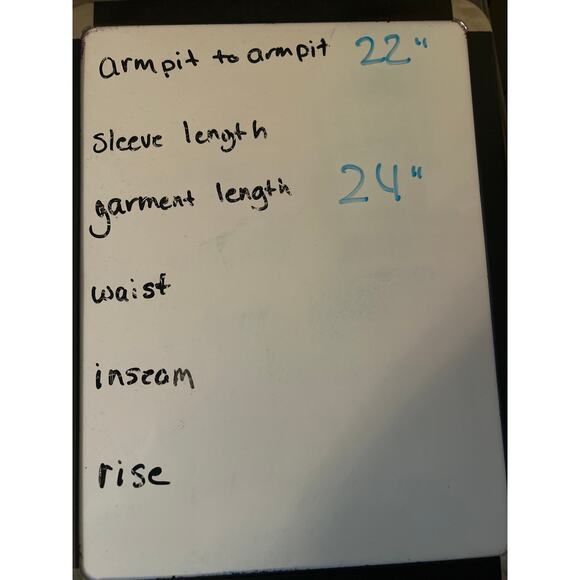 armpit to armpit 22"
sleeve length
garment length 24"
waist
inseam
rise